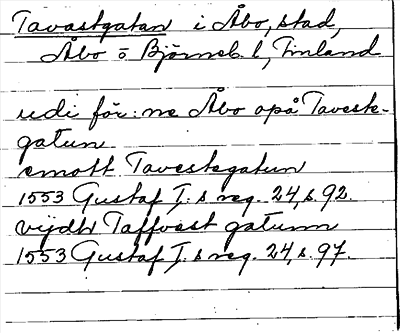 Tavastgatan i Åbo, stad,
Åbo o Björneb. l, Finland
udi för: ne Åbo opå Taveste-
gatun
emott Tavestegatun
1553 Gustaf I: s reg. 24, s. 92.
vijdh Taffvest gatunn
1553 Gustaf I: s reg. 24, s. 97.